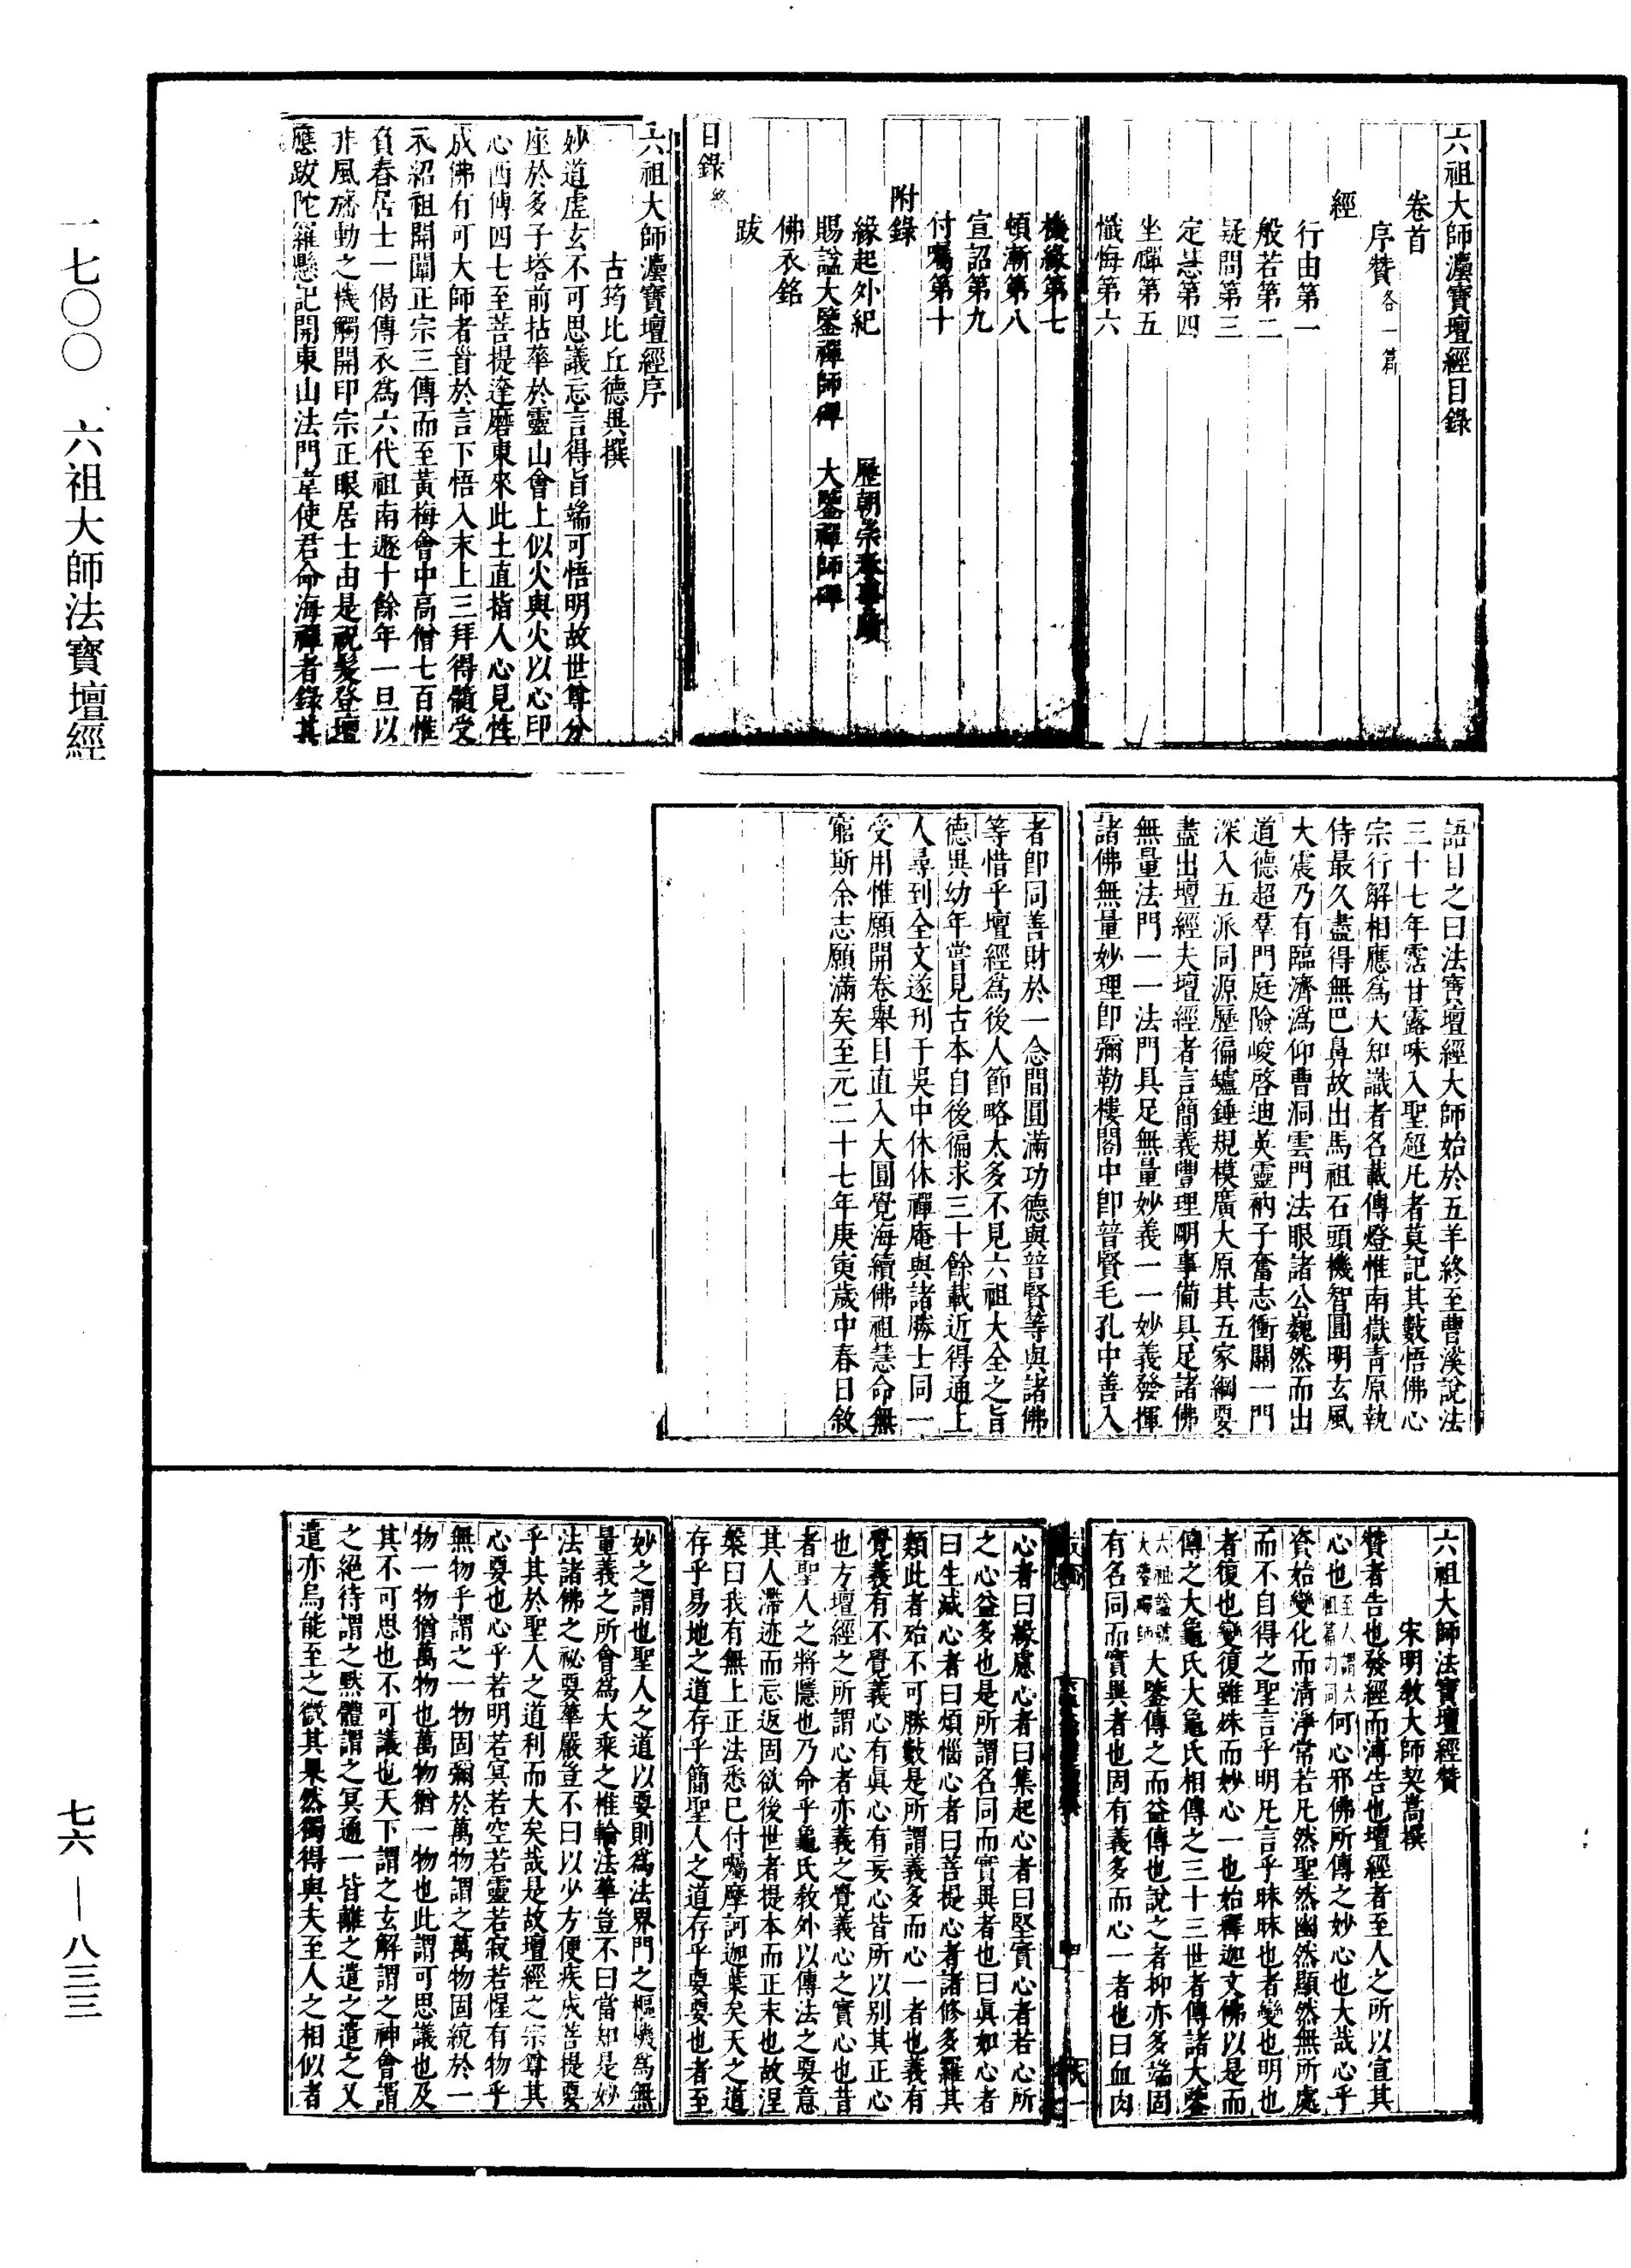 六祖大師灋寳壇經目錄
卷首
序贊各一篇
經
行由第一
般若第二
疑問第三
定慧第四
坐禪第五
懺悔第六
機緣第七
頓漸第八
宣詔第九
付囑第十
附錄
緣起外紀 歷朝崇奉事蹟
賜諡大鑒禪師碑 大鑒禪師碑
佛衣銘
跋
目錄終
六祖大師灋寶壇經序
古筠比丘德異撰
妙道虛玄不可思議忘言得旨端可悟明故世尊分
座於多子塔前拈華於靈山會上似火與火以心印
心西傳四七至菩提達磨東來此土直指人心見性
成佛有可大師者首於言下悟入末上三拜得髓受
衣紹祖開闡正宗三傳而至黃梅會中高僧七百惟
負舂居士一偈傳衣為六代祖南遯十餘年一旦以
非風旛動之機觸開印宗正眼居士由是祝髮登壇
應跋陀羅懸記開東山法門韋使君命海禪者錄其
語目之曰法寶壇經大師始於五羊終至曹溪說法
三十七年霑甘露味入聖超凡者莫記其數悟佛心
宗行解相應為大知識者名載傳燈惟南嶽青原執
侍最久盡得無巴鼻故出馬祖石頭機智圓明玄風
大震乃有臨濟溈仰曹洞雲門法眼諸公巍然而出
道德超羣門庭險峻啓迪英靈衲子奮志衝關一門
深入五派同源歷徧爐錘規模廣大原其五家綱要
盡出壇經夫壇經者言簡義豐理明事備具足諸佛
無量法門一一法門具足無量妙義一一妙義發揮
諸佛無量妙理即彌勒樓閣中即普賢毛孔中善入
者卽同善財於一念間圓滿功德與普賢等與諸佛
等惜乎壇經為後人節略太多不見六祖大全之旨
德異幼年嘗見古本自後徧求三十餘載近得通上
人尋到全文遂刊于吳中休休禪庵與諸勝士同一
受用惟願開卷舉目直入大圓覺海續佛祖慧命無
窮斯余志願滿矣至元二十七年庚寅歲中春日敘
六祖大師法寶壇經贊
宋明教大師契嵩撰
贊者告也發經而溥告也壇經者至人之所以宣其
心也至人謂六祖篇內同何心邪佛所傳之妙心也大哉心乎
資始變化而清淨常若凡然聖然幽然顯然無所處
而不自得之聖言乎明凡言乎昧昧也者變也明也
者復也變復雖殊而妙心一也始釋迦文佛以是而
傳之大龜氏大龜氏相傳之三十三世者傳諸大鑒
六祖諡號大鑒禪師大鑒傳之而益傳也說之者抑亦多端固
有名同而實異者也固有義多而心一者也曰血肉
心者曰緣慮心者曰集起心者曰堅實心者若心所
之心益多也是所謂名同而實異者也曰眞如心者
曰生滅心者曰煩惱心者曰菩提心者諸修多羅其
類此者殆不可勝數是所謂義多而心一者也義有
覺義有不覺義心有眞心有妄心皆所以別其正心
也方壇經之所謂心者亦義之覺義心之實心也昔
者聖人之將隱也乃命乎龜氏敎外以傳法之要意
其人滯迹而忘返固欲後世者提本而正末也故涅
槃曰我有無上正法悉已付囑摩訶迦葉矣天之道
存乎易地之道存乎簡聖人之道存乎要要也者至
妙之謂也聖人之道以要則為法界門之樞機為無
量義之所會為大乘之椎輪法華豈不曰當知是妙
法諸佛之祕要華嚴豈不曰以少方便疾成菩提要
乎其於聖人之道利而大矣哉是故壇經之宗尊其
心要也心乎若明若冥若空若靈若寂若惺有物乎
無物乎謂之一物固彌於萬物謂之萬物固統於一
物一物猶萬物也萬物猶一物也此謂可思議也及
其不可思也不可議也天下謂之玄解謂之神會謂
之絕待謂之默體謂之冥通一皆離之遣之遣之又
遣亦烏能至之微其果然獨得與夫至人之相似者
一七〇〇 六祖大師法寶壇經
七六—八三三